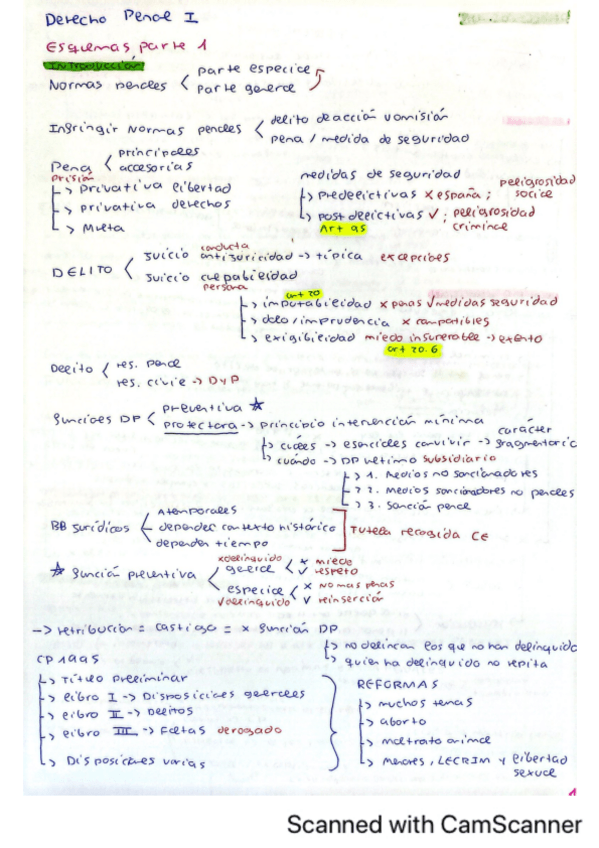 Derecho Penal I
Esquemas parte 1
Introducción
Normas penales < parte especial
parte general
Infringir Normas penales < delito de acción u omisión
pena / medida de seguridad
Pena < principales
accesorias
prisión
-> privativa libertad
-> privativa derechos
-> Multa
medidas de seguridad
-> Predelictivas x españa ; peligrosidad social
-> post delictivas ✓ ; peligrosidad criminal
Art 95
DELITO < Juicio antijuricidad -> típica excepciones
conducta
Juicio culpabilidad
persona
art 20
-> imputabilidad x penas ✓ medidas seguridad
-> dolo / imprudencia x compatibles
-> exigibilidad miedo insuperable -> exento
art 20.6
Delito < res. penal
res. civil -> DyP
Funciones DP < preventiva ☆
protectora -> principio intervención mínima
-> cuáles -> esenciales convivir -> carácter fragmentario
-> cuándo -> DP último subsidiario
-> 1. Medios no sancionadores
-> 2. Medios sancionadores no penales
-> 3. Sanción penal
BB jurídicos < Atemporales
depender contexto histórico
depender tiempo
] Tutela recogida CE
☆ Función preventiva < general < x miedo
✓ respeto
x delinquido
especial < x No mas penas
✓ reinserción
✓ delinquido
-> retribución = castigo = x función DP
-> no delincan los que no han delinquido
-> quien ha delinquido no repita
CP 1995
-> Título preliminar
-> libro I -> Disposiciones generales
-> libro II -> Delitos
-> libro III -> Faltas derogado
-> Disposiciones varias
REFORMAS
-> muchos temas
-> aborto
-> maltrato animal
-> Menores, LECRIM y libertad sexual
1
Scanned with CamScanner